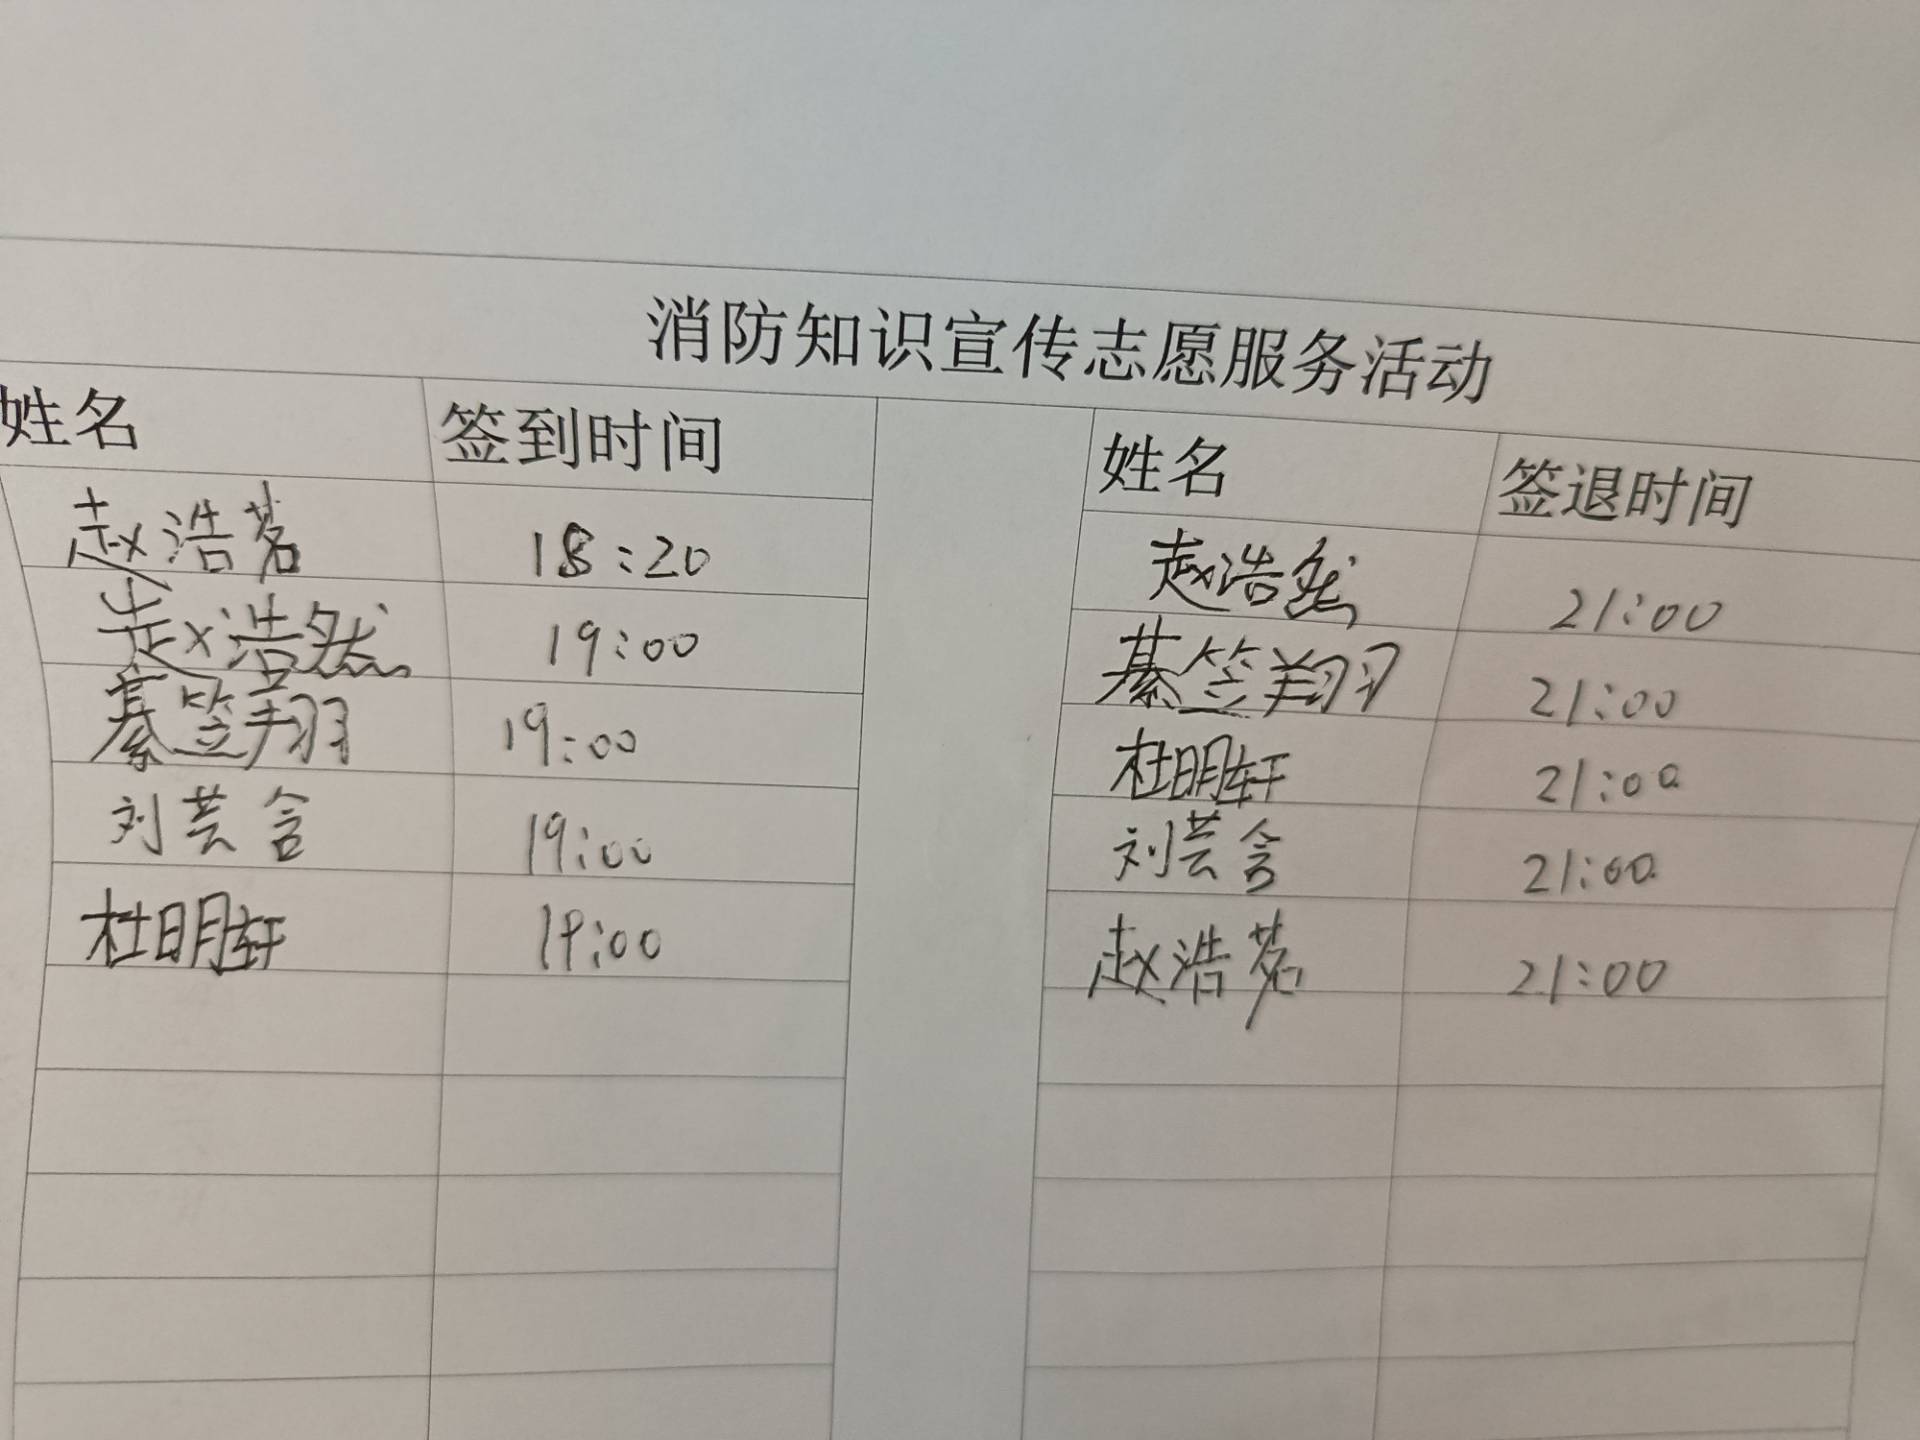 消防知识宣传志愿服务活动
姓名 签到时间 姓名 签退时间
赵浩茗 18:20 赵浩然 21:00
赵浩然 19:00 綦笠翔 21:00
綦笠翔 19:00 杜明轩 21:00
刘芸含 19:00 刘芸含 21:00
杜明轩 19:00 赵浩茗 21:00